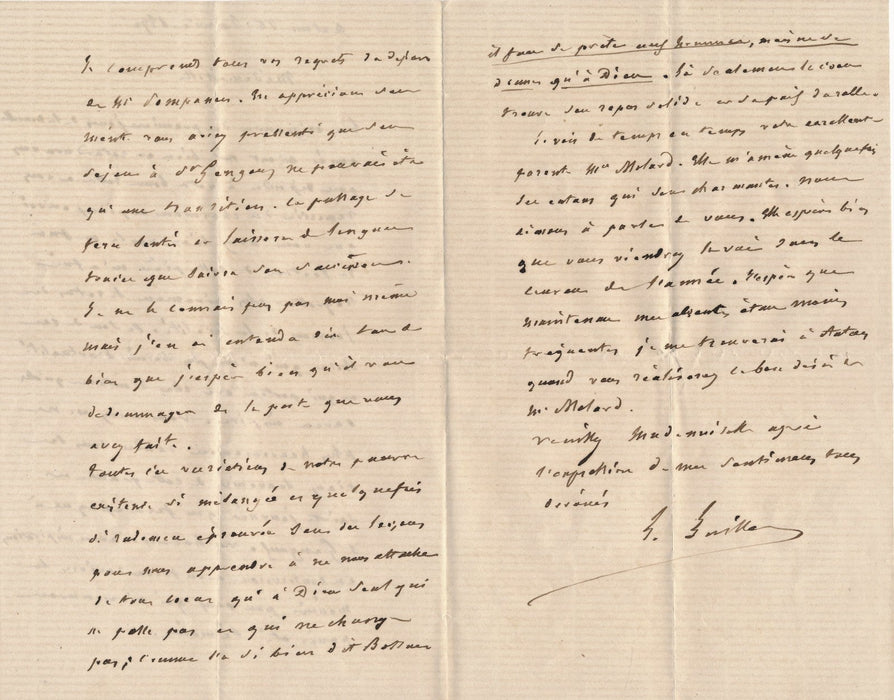 Je comprend tous vos regrets du départ
de Mr Compances. En appréciant son
mérite vous aviez pressenti que son
séjour à St Gengoux ne pouvait être
qu'une transition. Le passage se
fera sentir et laissera de longues
traces que suivra son successeur.
Je ne le connais pas pas moi même
mais j'en ai entendu dire tant de
bien que j'espère bien qu'il vous
dédommagera de la perte que vous
avez faite.
Toutes ces variations de notre pauvre
existence si mélangée et quelquefois
si rudement éprouvée sont des leçons
pour nous apprendre à ne nous attacher
de tout coeur qu'à Dieu seul qui
ne passe pas et qui ne change
pas, comme l'a si bien dit Bossuet
il faut se prêter aux hommes, mais ne se
donner qu'à Dieu. Là seulement le coeur
trouve son repos solide et sa paix durable.
Je vois de temps en temps votre excellente
parente Me Molard. Elle m'amène quelquefois
ses enfans qui sont charmantes. nous
aimons à parler de vous. Elle espère bien
que vous viendrez la voir dans le
courant de l'année. J'espère que
maintenant mes absences étant moins
fréquentes je me trouverai à Autun
quand vous réaliserez le bon désir de
Me Molard.
Veuillez Mademoiselle agréer
l'expression de mes sentimens tous
dévoués